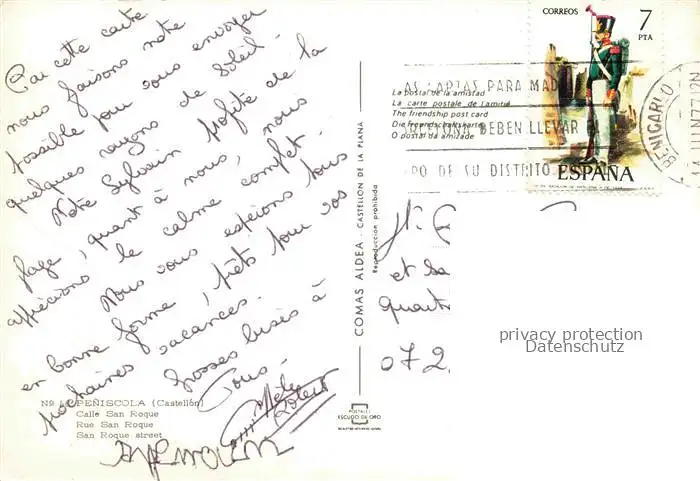 Par cette carte
nous faisons notre
possible pour vous envoyer
quelques rayons de soleil -
Notre Sylvain profite de la
plage, quant à nous, nous
apprécions le calme complet -
Nous vous espérons tous
en bonne forme, prêts pour vos
prochaines vacances.
Grosses bises à
Tous -
Nº PEÑISCOLA (Castellón)
Calle San Roque
Rue San Roque
San Roque street
COMAS ALDEA - CASTELLON DE LA PLANA
Reproducción prohibida
POSTALES
ESCUDO DE ORO
CORREOS
7
PTA
ESPAÑA
La postal de la amistad
La carte postale de l'amitié
The friendship post card
Die Freundschaftskarte
O postal da amizade
AS CARTAS PARA MAD
BARCELONA DEBEN LLEVAR
DE SU DISTRITO
BENICARLO
et sa
quart
072
privacy protection
Datenschutz